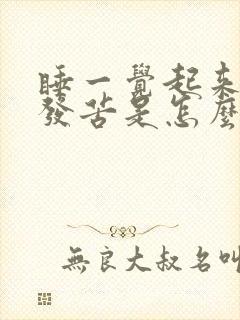 睡一覺起來
發苦是怎麼
無良大叔名叫